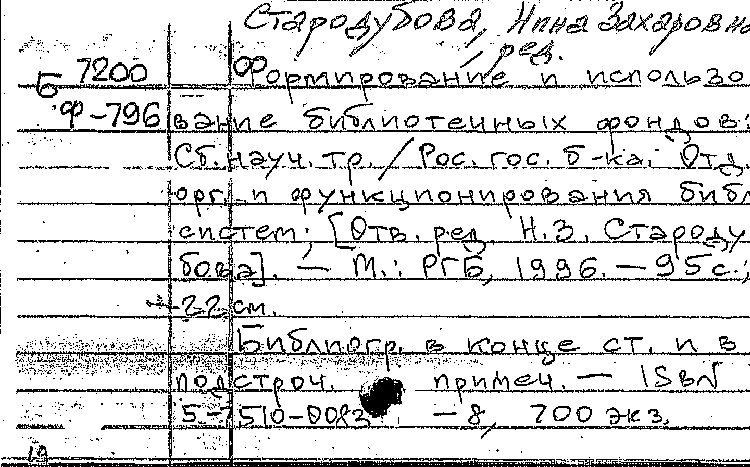 Стародубова, Нина Захаровна
ред.
Б 7200 Формирование и использо
Ф-796 вание библиотечных фондов:
Сб. науч. тр. / Рос. гос. б-ка; Отд.
орг. и функционирования библ.
систем; [Отв. ред. Н.З. Староду
бова]. — М.: РГБ, 1996. — 95с.;
22 см.
Библиогр. в конце ст. и в
подстроч. примеч. — ISBN
5-7510-0083-8, 700 экз.